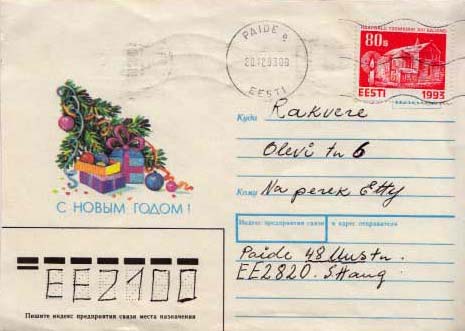 PAIDE e
20.12.93.09
EESTI
80s
EESTI 1993
Куда Rakvere
Olevi tn 6
Кому Naperek Etty
С НОВЫМ ГОДОМ!
Индекс предприятия связи и адрес отправителя
Paide 48 Uus tn.
EE2820. S. Haug
EE2100
Пишите индекс предприятия связи места назначения